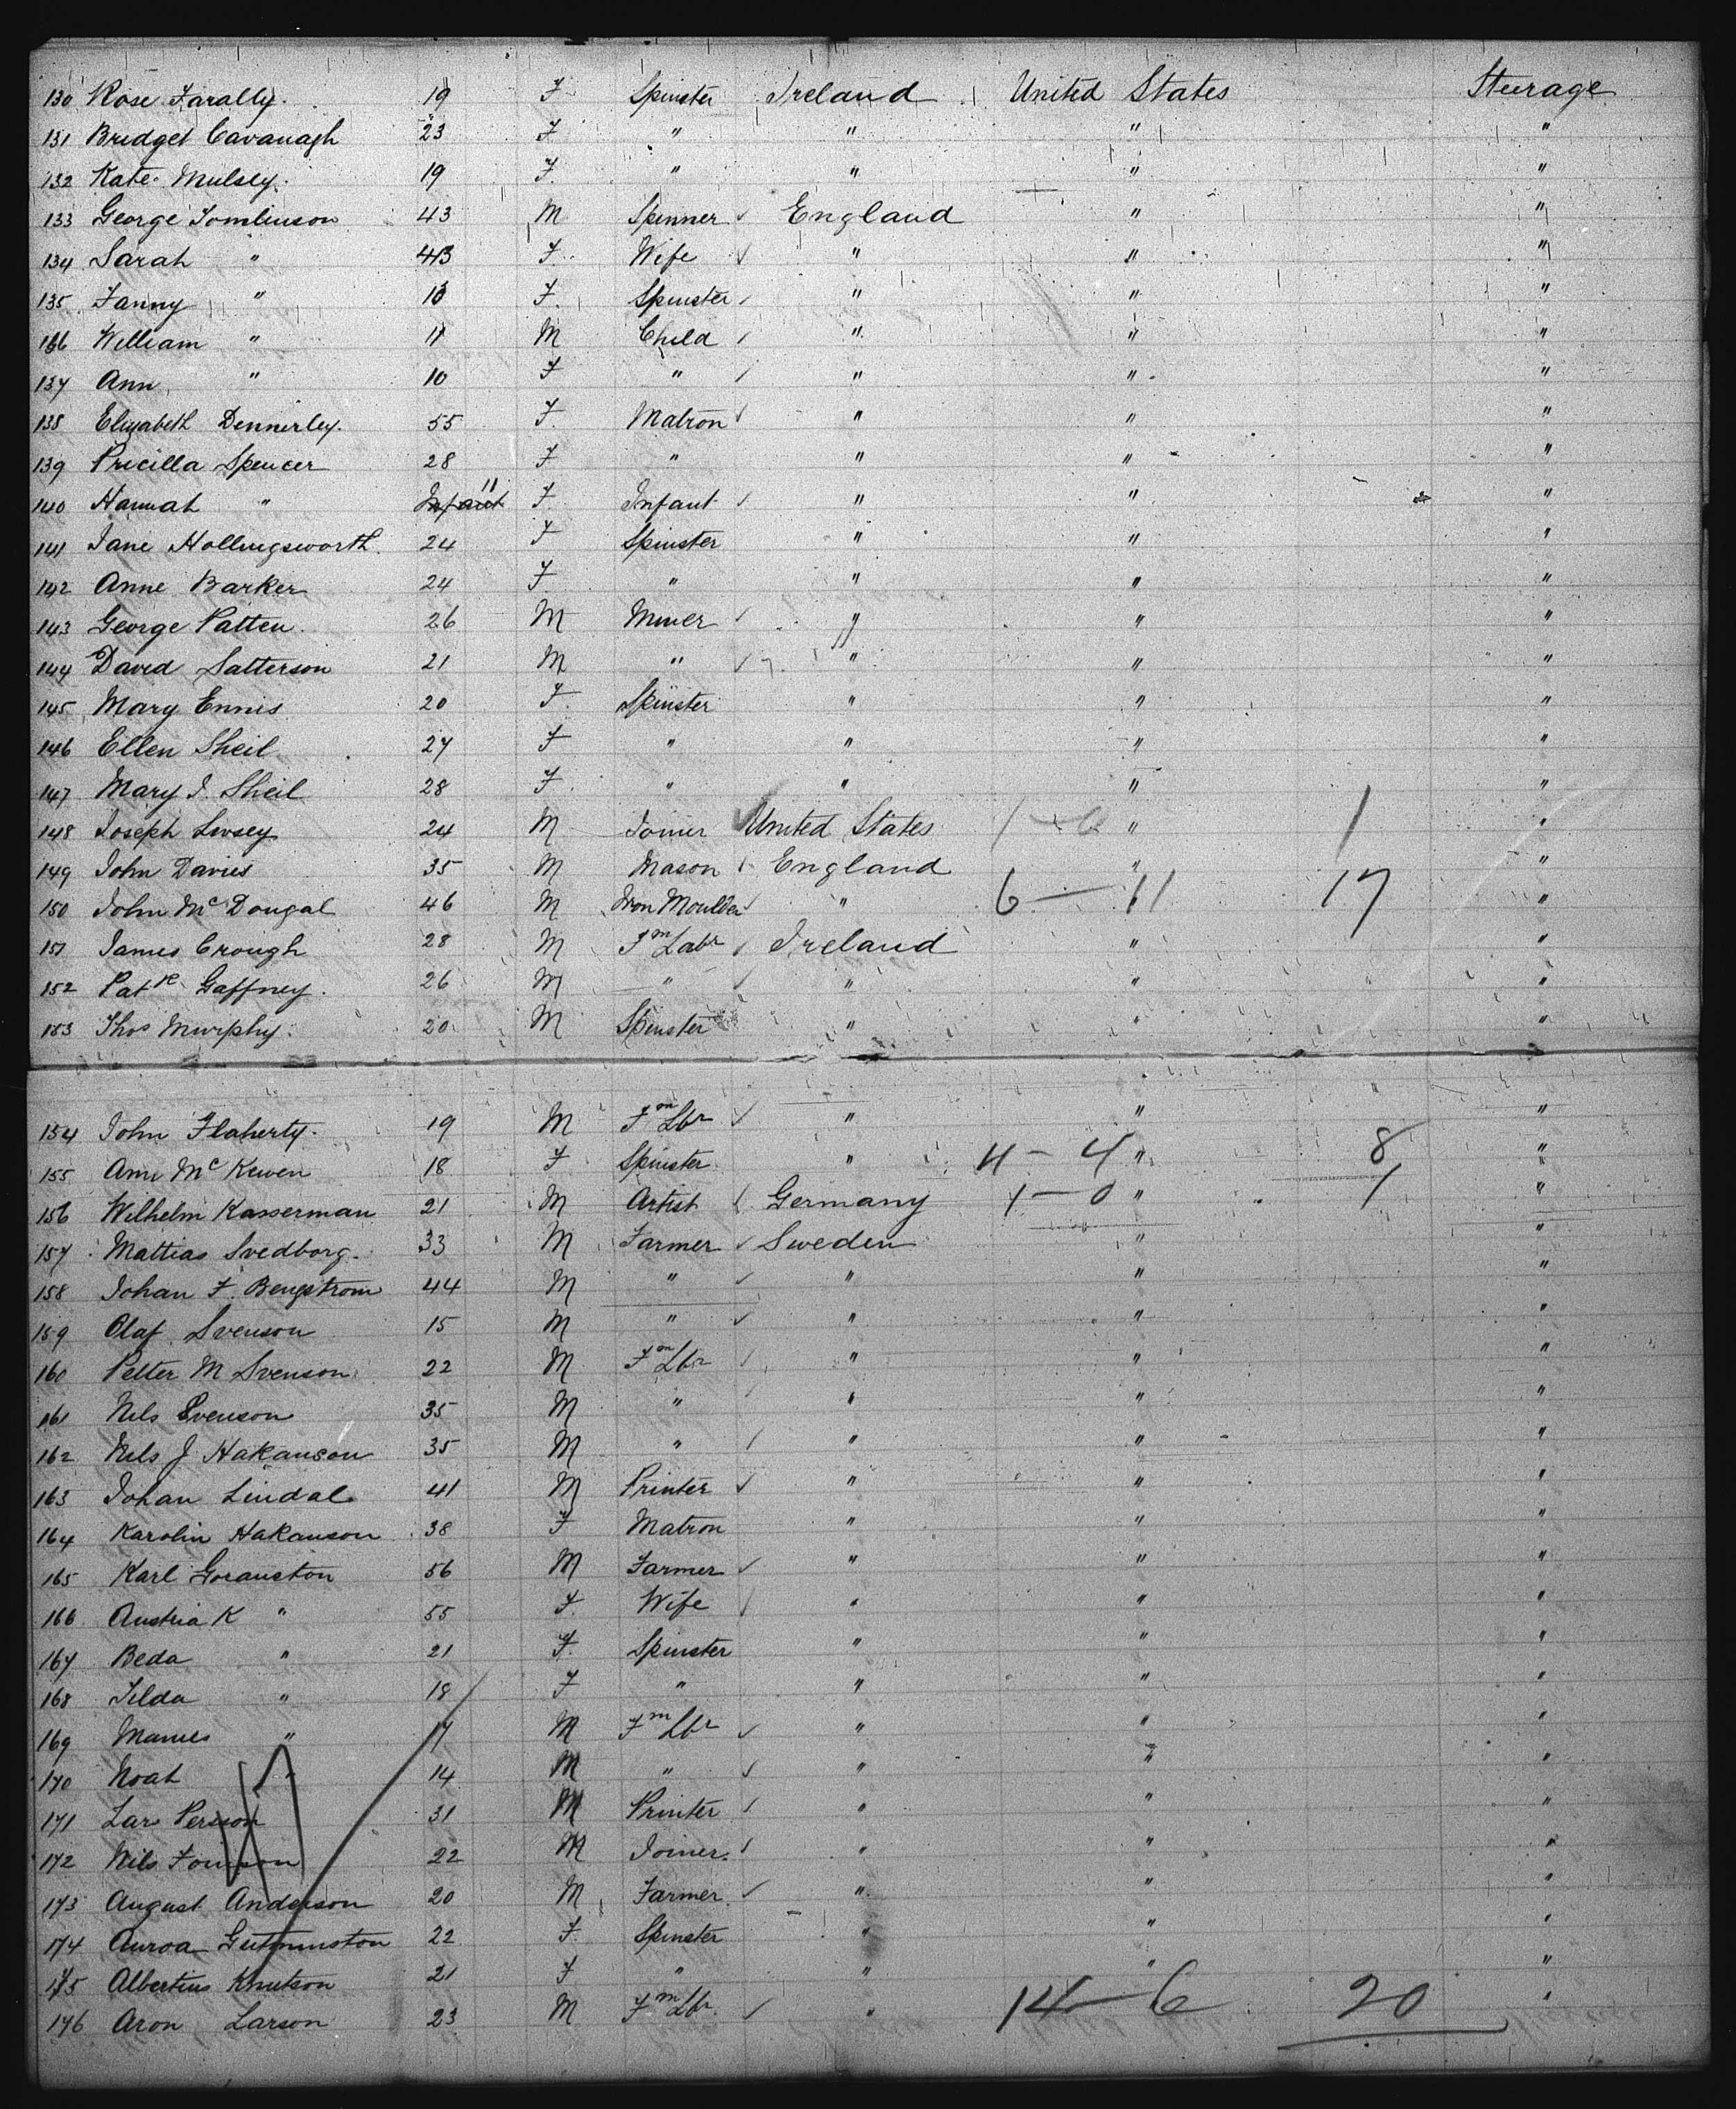 130 Rose Farally. 19 F Spinster Ireland United States Steerage
131 Bridget Cavanagh 23 F " " " "
132 Kate Mulsey. 19 F. " " " "
133 George Tomlinson 43 M Spinner England " "
134 Sarah " 43 F. Wife " " "
135 Fanny " 13 F. Spinster " " "
136 William " 11 M Child " " "
137 Ann " 10 F " " " "
138 Elizabeth Dennerley. 55 F. Matron " " "
139 Pricilla Spencer 28 F " " " "
140 Hannah " Infant 11 F. Infant " " "
141 Jane Hollingsworth. 24 F Spinster " " "
142 Anne Barker 24 F " " " "
143 George Patten. 26 M Miner " " "
144 David Satterson 21 M " " " "
145 Mary Ennis 20 F. Spinster " " "
146 Ellen Sheil 27 F " " " "
147 Mary J. Sheil 28 F. " " " "
148 Joseph Livsey 24 M Joiner United States 1-0 " 1 "
149 John Davies 35 M Mason England " "
150 John Mc Dougal 46 M Iron Moulder " 6 - 11 17 "
151 James Crough 28 M Fm Labr Ireland " "
152 Patk Gaffney. 26 M " " " "
153 Thos Murphy. 20 M Spinster " " "
154 John Flaherty. 19 M Fm Lbr " " "
155 Ann Mc Kewen 18 F Spinster " 4 - 4 " 8 "
156 Wilhelm Kasserman 21 M Artist Germany 1 - 0 " 1 "
157 Mattias Svedborg. 33 M Farmer Sweden " "
158 Johan F. Bengstrom 44 M " " " "
159 Olaf Svenson 15 M " " " "
160 Petter M Svenson 22 M Fm Lbr " " "
161 Nels Svenson 35 M " " " "
162 Nels J Hakanson 35 M " " " "
163 Johan Lindal 41 M Printer " " "
164 Karolin Hakanson 38 F Matron " " "
165 Karl Goranston 56 M Farmer " " "
166 Austria K " 55 F. Wife " " "
167 Beda " 21 F. Spinster " " "
168 Tilda " 18 F " " " "
169 " 17 M Fm Lbr " " "
170 Noah " 14 M " " " "
171 Lars Persson 31 M Printer " " "
172 Nils 22 M Joiner. " " "
173 August Anderson 20 M Farmer " " "
174 Auroa 22 F. Spinster " " "
175 Albertius Knutson 21 F " " " "
176 Aron Larson 23 M Fm Lbr. " 14 - 6 20 "